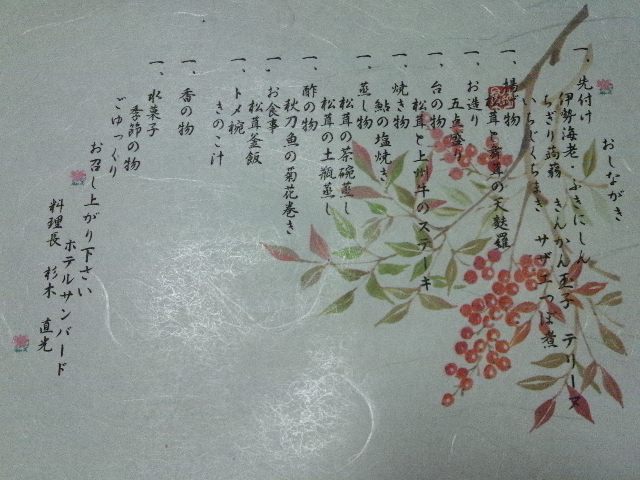 おしながき
一、先付け
伊勢海老・ふきにしん テリーヌ
ちぎり蒟蒻 きんかん玉子
いちじくちまき サザエつぼ煮
一、揚げ物
松茸と舞茸の天麩羅
一、お造り
五点盛り
一、台の物
松茸と上州牛のステーキ
一、焼き物
鮎の塩焼き
一、蒸し物
松茸の茶碗蒸し
松茸の土瓶蒸し
一、酢の物
秋刀魚の菊花巻き
一、お食事
松茸釜飯
一、トメ椀
きのこ汁
一、香の物
一、水菓子
季節の物
ごゆっくり
お召し上がり下さい
ホテルサンバード
料理長 杉木 直光